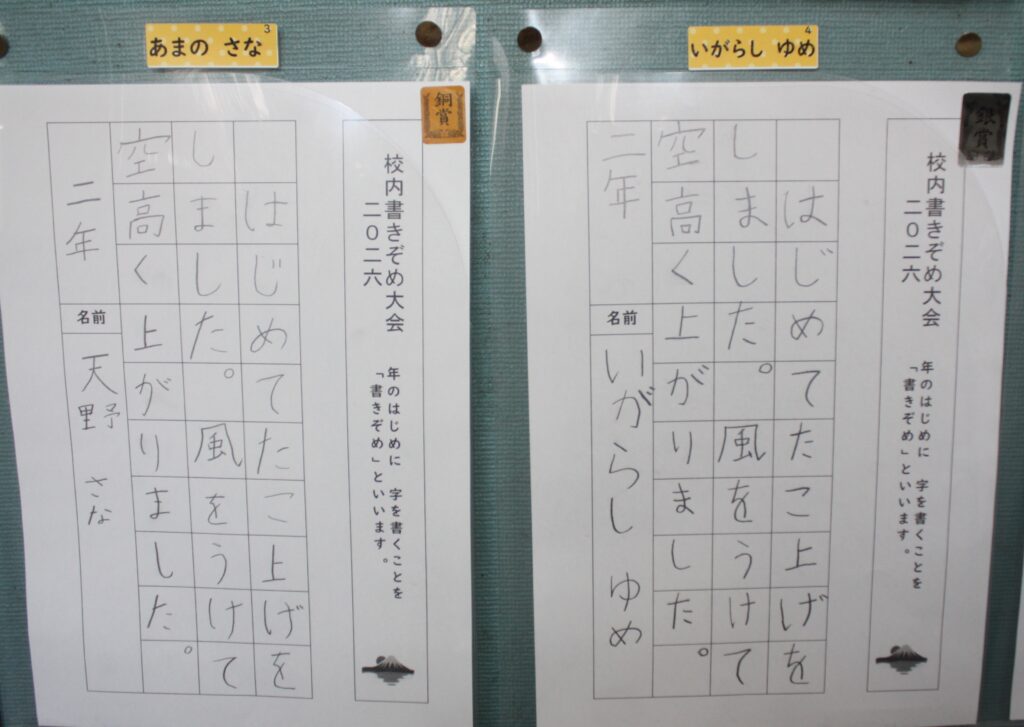 3
あまの さな
銅賞
校内書きぞめ大会
二〇二六
年のはじめに 字を書くことを
「書きぞめ」といいます。
はじめてたこ上げを
しました。風をうけて
空高く上がりました。
二年
名前
天野 さな
4
いがらし ゆめ
銀賞
校内書きぞめ大会
二〇二六
年のはじめに 字を書くことを
「書きぞめ」といいます。
はじめてたこ上げを
しました。風をうけて
空高く上がりました。
二年
名前
いがらし ゆめ